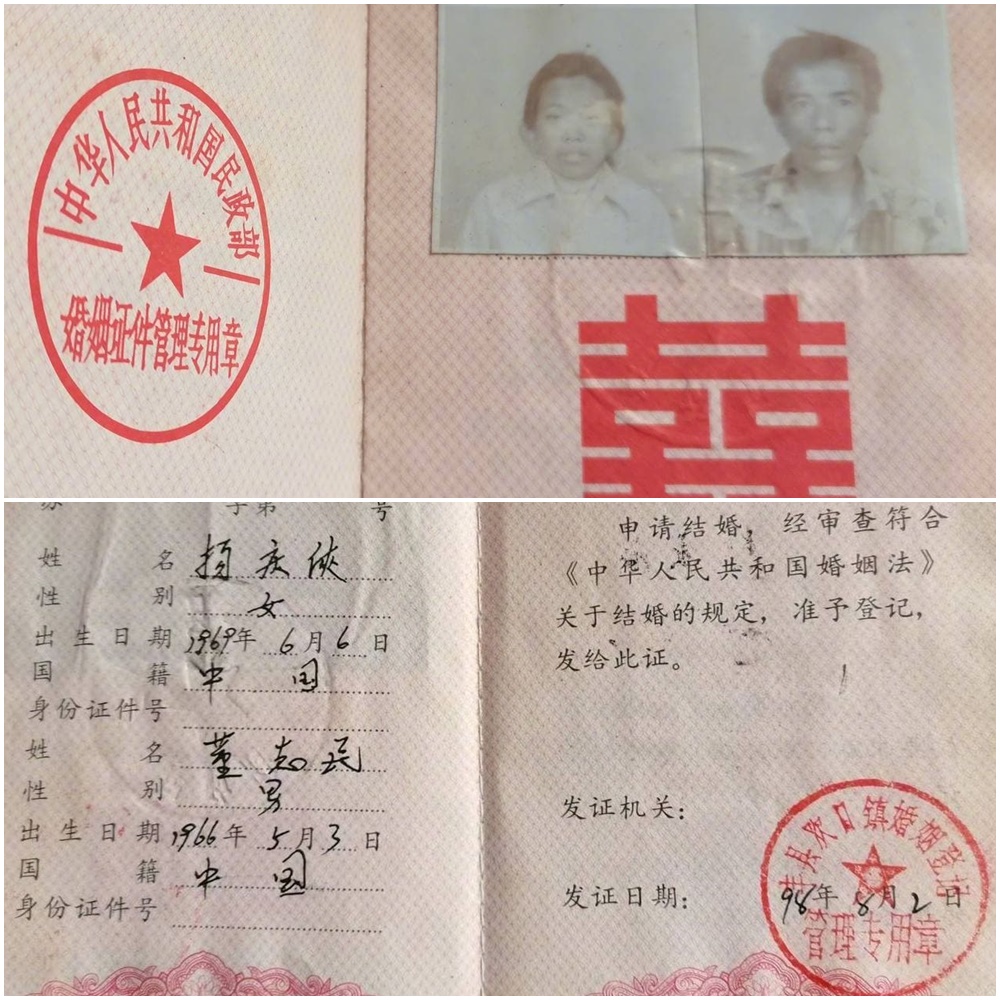 中华人民共和国民政部
婚姻证件管理专用章
囍
字第 号
姓 名 杨庆侠
性 别 女
出生日期 1969年 6月6日
国 籍 中国
身份证件号
姓 名 董志民
性 别 男
出生日期 1966年 5月3日
国 籍 中国
身份证件号
申请结婚，经审查符合
《中华人民共和国婚姻法》
关于结婚的规定，准予登记，
发给此证。
发证机关：
丰县欢口镇婚姻登记
管理专用章
发证日期： 98年 8月2日